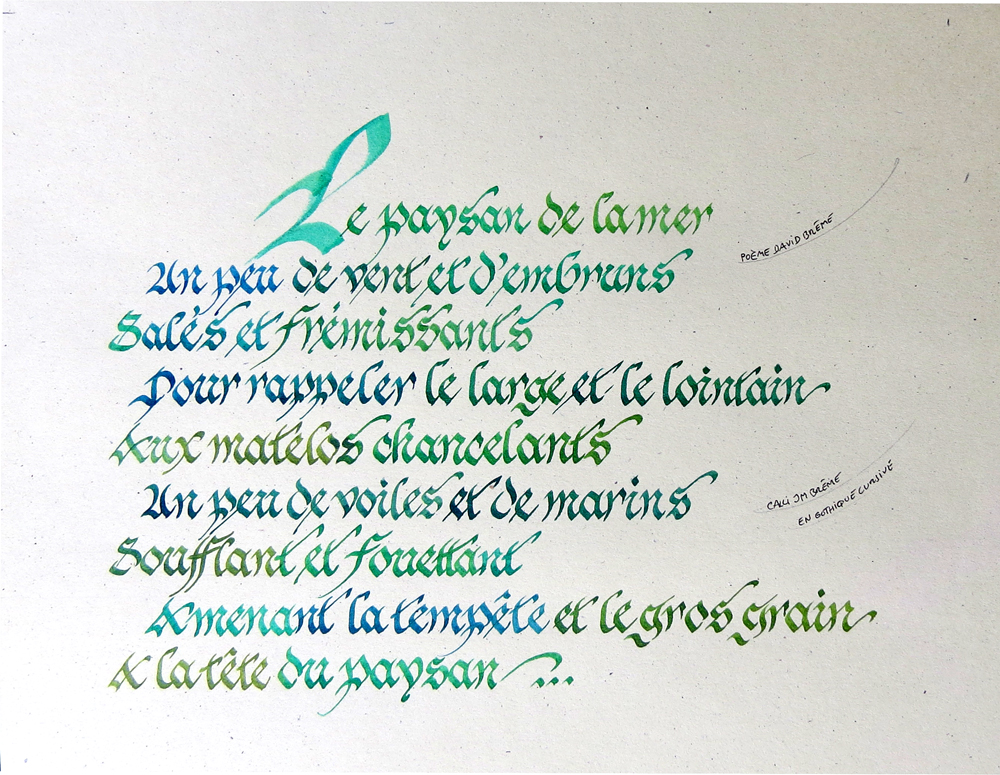 Le paysan de la mer
Un peu de vent et d'embruns
Salés et frémissants
Pour rappeler le large et le lointain
Aux matelos chancelants
Un peu de voiles et de marins
Soufflant et fouettant
Amenant la tempête et le gros grain
A la tête du paysan ...
POÈME DAVID BRÊMÉ
CALLI JM BRÊME
EN GOTHIQUE CURSIVE